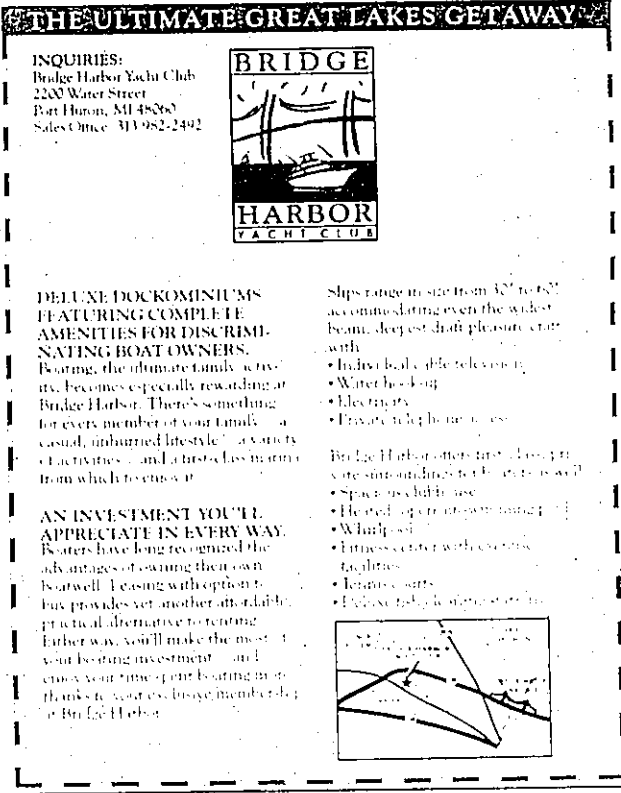 THE ULTIMATE GREAT LAKES GETAWAY
INQUIRIES:
Bridge Harbor Yacht Club
2200 Water Street
Port Huron, MI 48060
Sales Office 313 982-2492
BRIDGE
HARBOR
YACHT CLUB
DELUXE DOCKOMINIUMS
FEATURING COMPLETE
AMENITIES FOR DISCRIMI-
NATING BOAT OWNERS.
Boating, the ultimate family activ-
ity, becomes especially rewarding at
Bridge Harbor. There's something
for every member of your family
casual, unhurried lifestyle a variety
of activities and a first-class marina
from which to enjoy it
AN INVESTMENT YOU'LL
APPRECIATE IN EVERY WAY.
Boaters have long recognized the
advantages of owning their own
boatwell. Leasing with option to
buy provides yet another affordable,
practical alternative to renting
Either way, you'll make the most of
your boating investment and
enjoy your time spent boating more
thanks to your exclusive membership
at Bridge Harbor
Slips range in size from 30' to 60'
accommodating even the widest
beam, deepest draft pleasure craft
with
• Individual cable television
• Water hook-up
• Electricity
• Private telephone access
Bridge Harbor offers first class pri-
vate surroundings for boaters as well
• Spacious clubhouse
• Heated swimming pool
• Whirlpool
• Fitness center with exercise
facilities
• Tennis courts
• Deluxe fish cleaning station